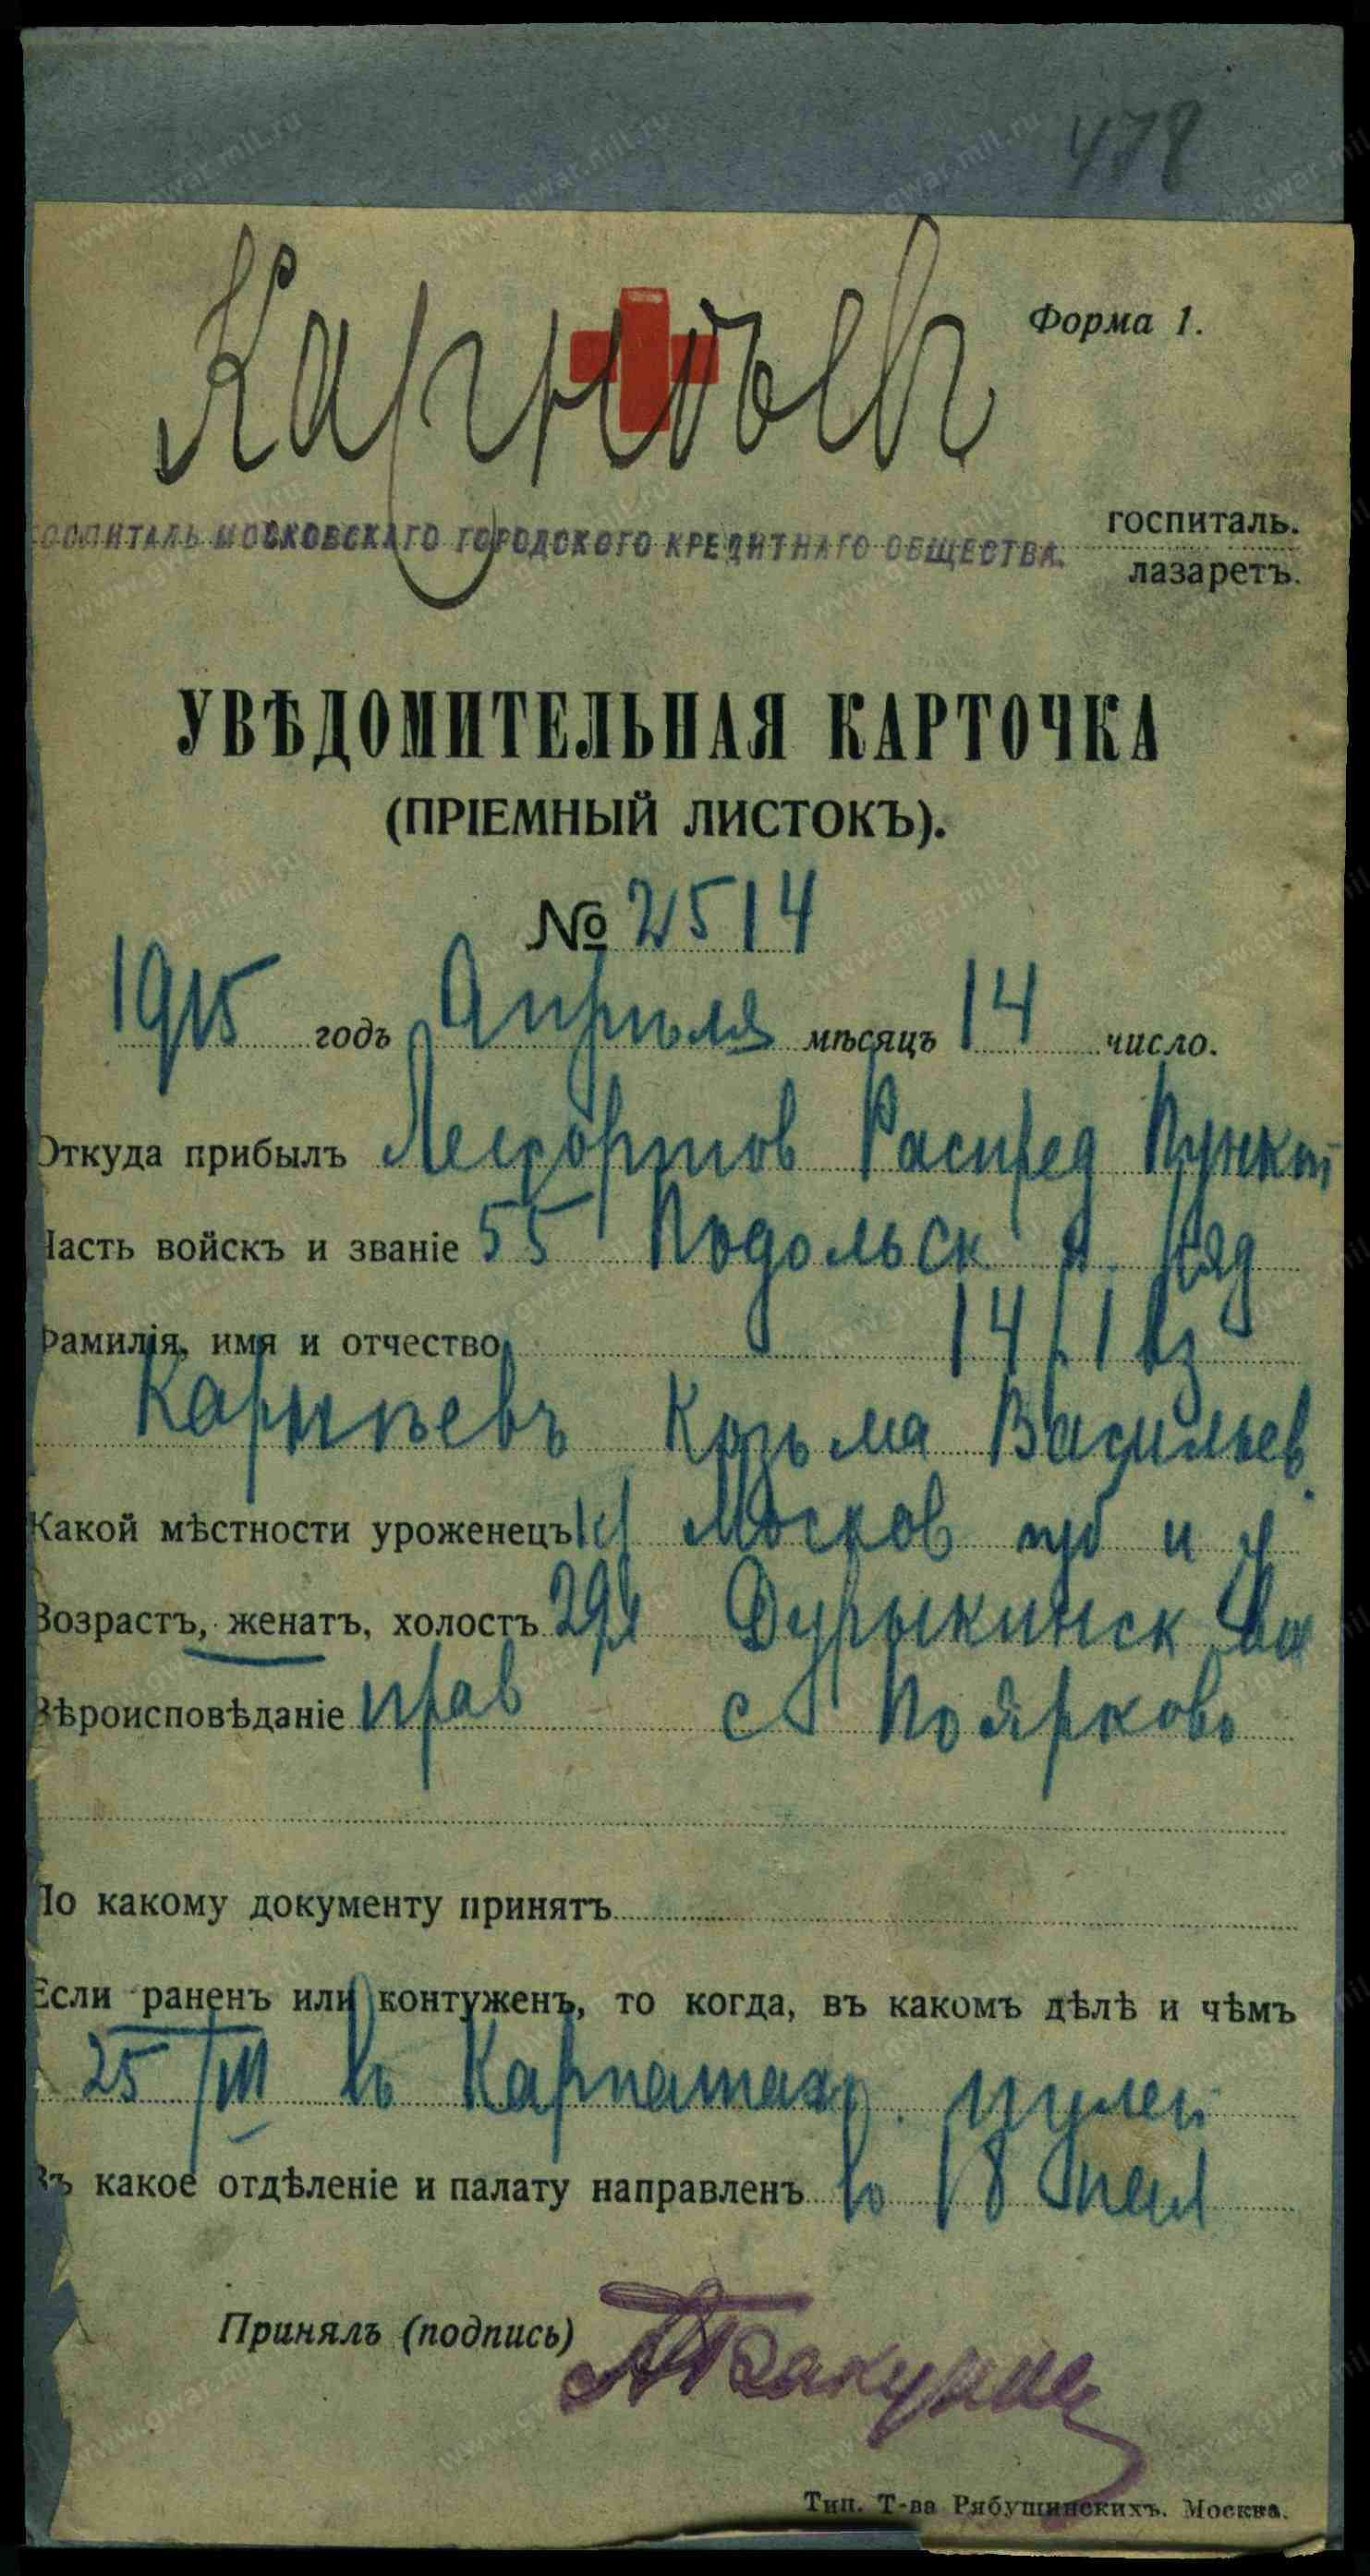 478
Карнѣевъ
Форма 1.
госпиталь.
ГОСПИТАЛЬ МОСКОВСКАГО ГОРОДСКОГО КРЕДИТНАГО ОБЩЕСТВА.
лазаретъ.
УВѢДОМИТЕЛЬНАЯ КАРТОЧКА
(ПРІЕМНЫЙ ЛИСТОКЪ).
№ 2514
1915 годъ Апрѣля мѣсяцъ 14 число.
Откуда прибылъ Лефортов Распред Пункт
Часть войскъ и званіе 55 Подольск п. ряд
Фамилія, имя и отчество 14/I
Карнѣевъ Козьма Васильев
Какой мѣстности уроженецъ Москов губ и у
Возрастъ, женатъ, холостъ 29 Дурыкинск
Вѣроисповѣданіе прав с Поярково
По какому документу принятъ
Если раненъ или контуженъ, то когда, въ какомъ дѣлѣ и чѣмъ
25/III въ Карпатахъ. пулей
Въ какое отдѣленіе и палату направленъ 18
Принялъ (подпись)
Тип. Т-ва Рябушинскихъ. Москва.
www.gwar.mil.ru